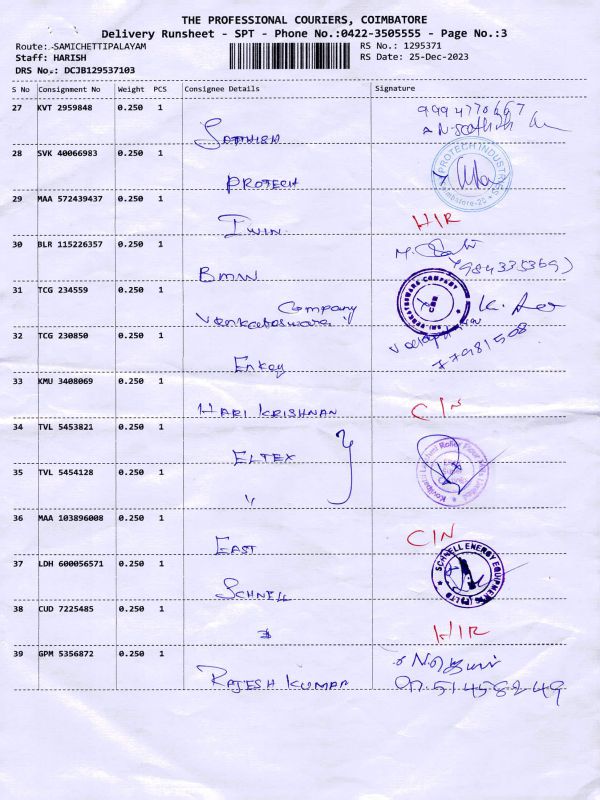 THE PROFESSIONAL COURIERS, COIMBATORE
Delivery Runsheet - SPT - Phone No.:0422-3505555 - Page No.:3
Route: SAMICHETTIPALAYAM
RS No.: 1295371
Staff: HARISH
RS Date: 25-Dec-2023
DRS No.: DCJB129537103
S No Consignment No Weight PCS Consignee Details Signature
27 KVT 2959848 0.250 1
SATHISH
28 SVK 40066983 0.250 1
PROTECH INDUSTRIES
PROTECH
29 MAA 572439437 0.250 1
IWIN HIR
30 BLR 115226357 0.250 1
BMW
31 TCG 234559 0.250 1
Venkateswara Company
32 TCG 230850 0.250 1
Enkay
33 KMU 3408069 0.250 1
HARI KRISHNAN CIN
34 TVL 5453821 0.250 1
ELTEX
35 TVL 5454128 0.250 1
"
36 MAA 103896008 0.250 1
EAST CIN
37 LDH 600056571 0.250 1
SCHNELL ENERGY EQUIPMENTS (P) LTD
SCHNELL
38 CUD 7225485 0.250 1
HIR
39 GPM 5356872 0.250 1
RAJESH KUMAR 9751458249